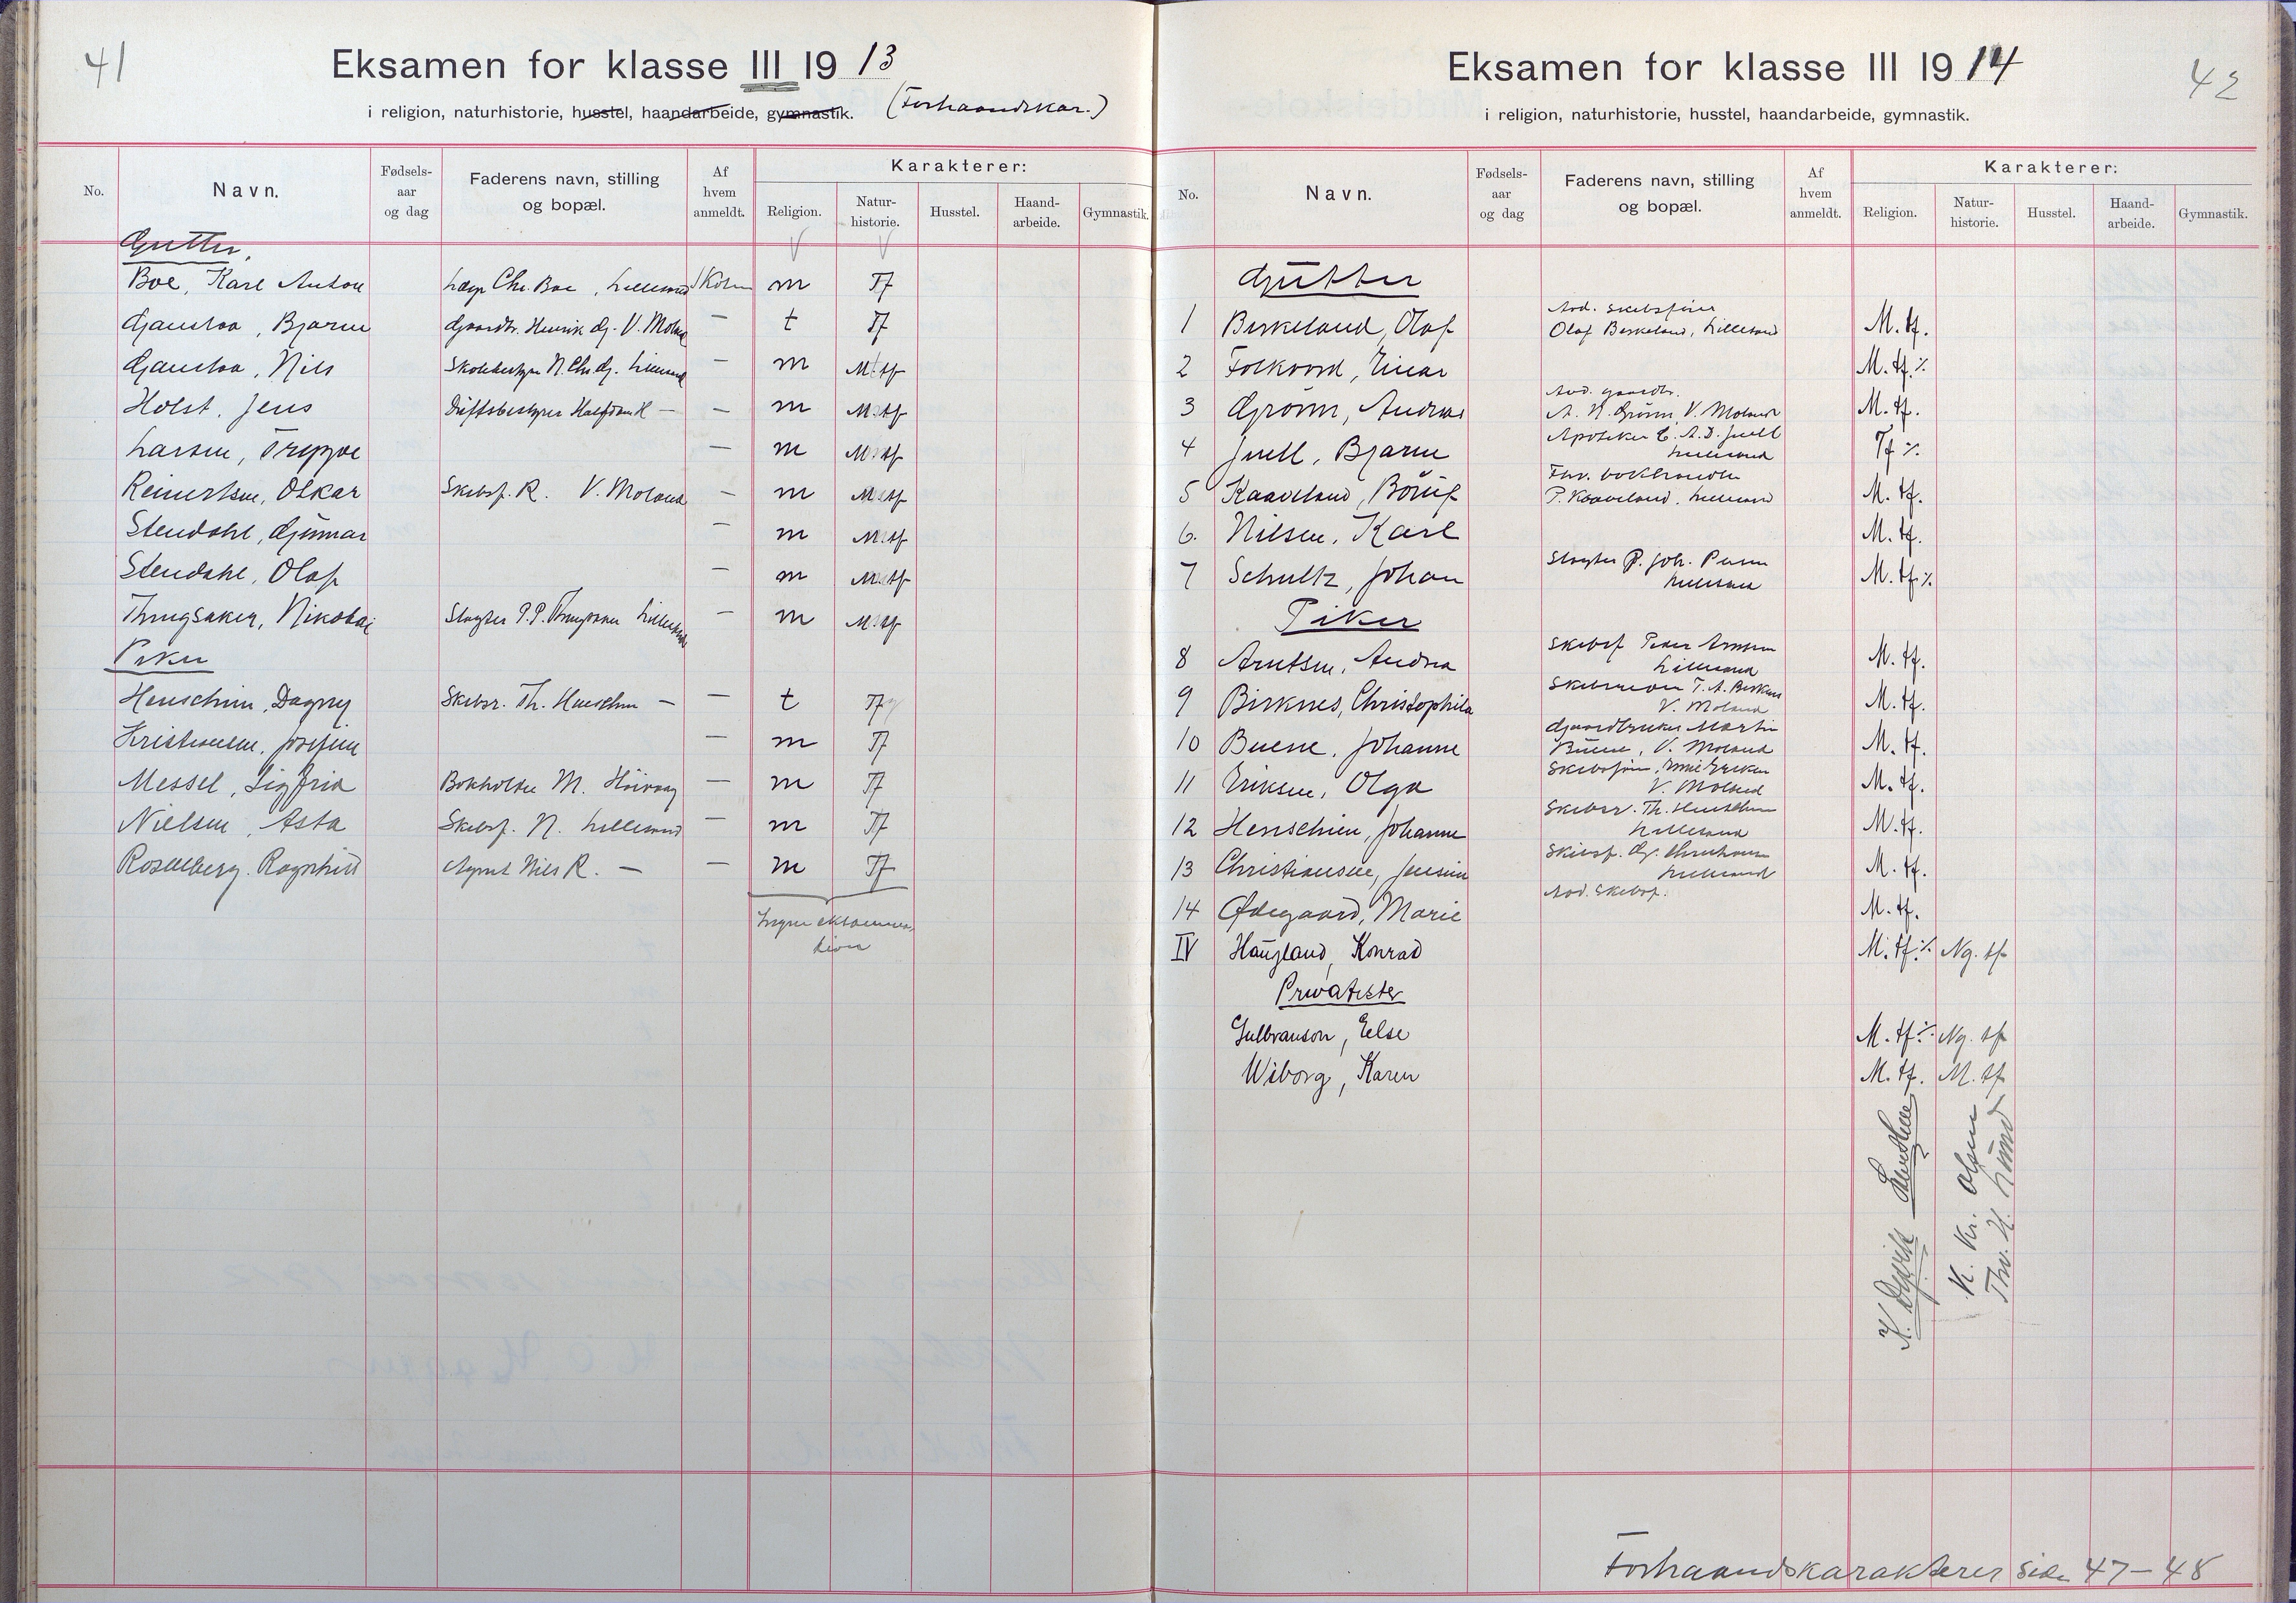 41
Eksamen for klasse III 1913
i religion, naturhistorie, husstel, haandarbeide, gymnastik. (Forhaandskar.)
No. Navn. Fødsels-aar og dag Faderens navn, stilling og bopæl. Af hvem anmeldt. Karakterer:
Religion. Natur-historie. Husstel. Haand-arbeide. Gymnastik.
Gutter.
Boe, Karl Anton Chr. Boe, Lillesand m Tf
Gaustaa, Bjarne Gaardbr. Henrik G. V. Moland — t Tf
Gaustaa, Nils Skolebestyrer N. Chr. G. Lillesand — m M.tf
Holst, Jens Driftsbestyrer Halfdan H — — m M.tf
Larsen, Trygve — m M.tf
Reinertsen, Oskar Skibsf. R. V. Moland — m M.tf
Stendahl, Gunnar — m M.tf
Stendahl, Olaf — m M.tf
Thrugsaker, Nikolai Slagter P.P. Thrugsaker Lillesand — m M.tf
Piker
Henschien, Dagny Skibsr. Th. Henschien — — t Tf
Kristiansen, Josefine — m Tf
Messel, Sigfrid Bokholder M. Høivaag — m Tf
Nielsen, Asta Skibsf. N. Lillesand — m Tf
Rosenberg, Ragnhild Agent Nils R. — — m Tf
Ingen eksamination
42
Eksamen for klasse III 1914
i religion, naturhistorie, husstel, haandarbeide, gymnastik.
No. Navn. Fødsels-aar og dag Faderens navn, stilling og bopæl. Af hvem anmeldt. Karakterer:
Religion. Natur-historie. Husstel. Haand-arbeide. Gymnastik.
Gutter
Avd. skibsfører
1 Birkeland, Olaf Olaf Birkeland, Lillesand M. tf.
2 Folkvord, Einar M. tf. %
Avd. gaardbr.
3 Grönn, Andreas A. N. Grönn, V. Moland M. tf.
Apoteker C. A. D. Juell
4 Juell, Bjarne Lillesand Tf %
Fhv. bokhandler
5 Kaaveland, Börüf P. Kaaveland, Lillesand M. tf.
6. Nilsen, Karl M. tf.
Slagter P. Joh.
7 Schultz, Johan Lillesand M. tf. %
Piker
Skibsf Peder Arntsen
8 Arntsen, Andrea Lillesand M. tf.
Skibsreder T. A. Birknes
9 Birknes, Christophila V. Moland M. tf.
Gaardbruker Martin
10 Buene, Johanne Buene, V. Moland M. tf.
Skibsfører Emil Eriksen
11 Eriksen, Olga V. Moland M. tf.
Skibsr. Th. Henschien
12 Henschien, Johanne Lillesand M. tf.
Skibsf. G. Christiansen
13 Christiansen, Jensine Lillesand M. tf.
Avd. Skibsf.
14 Ødegaard, Marie M. tf.
IV Haugland, Konrad M. tf. % Ng. tf
Privatister
Gulbranson, Else M. tf. % Ng. tf
Wiborg, Karen M. tf. M. tf
K. Kr. Olsen
Thv. H. Lund
Forhaandskarakterer side 47–48